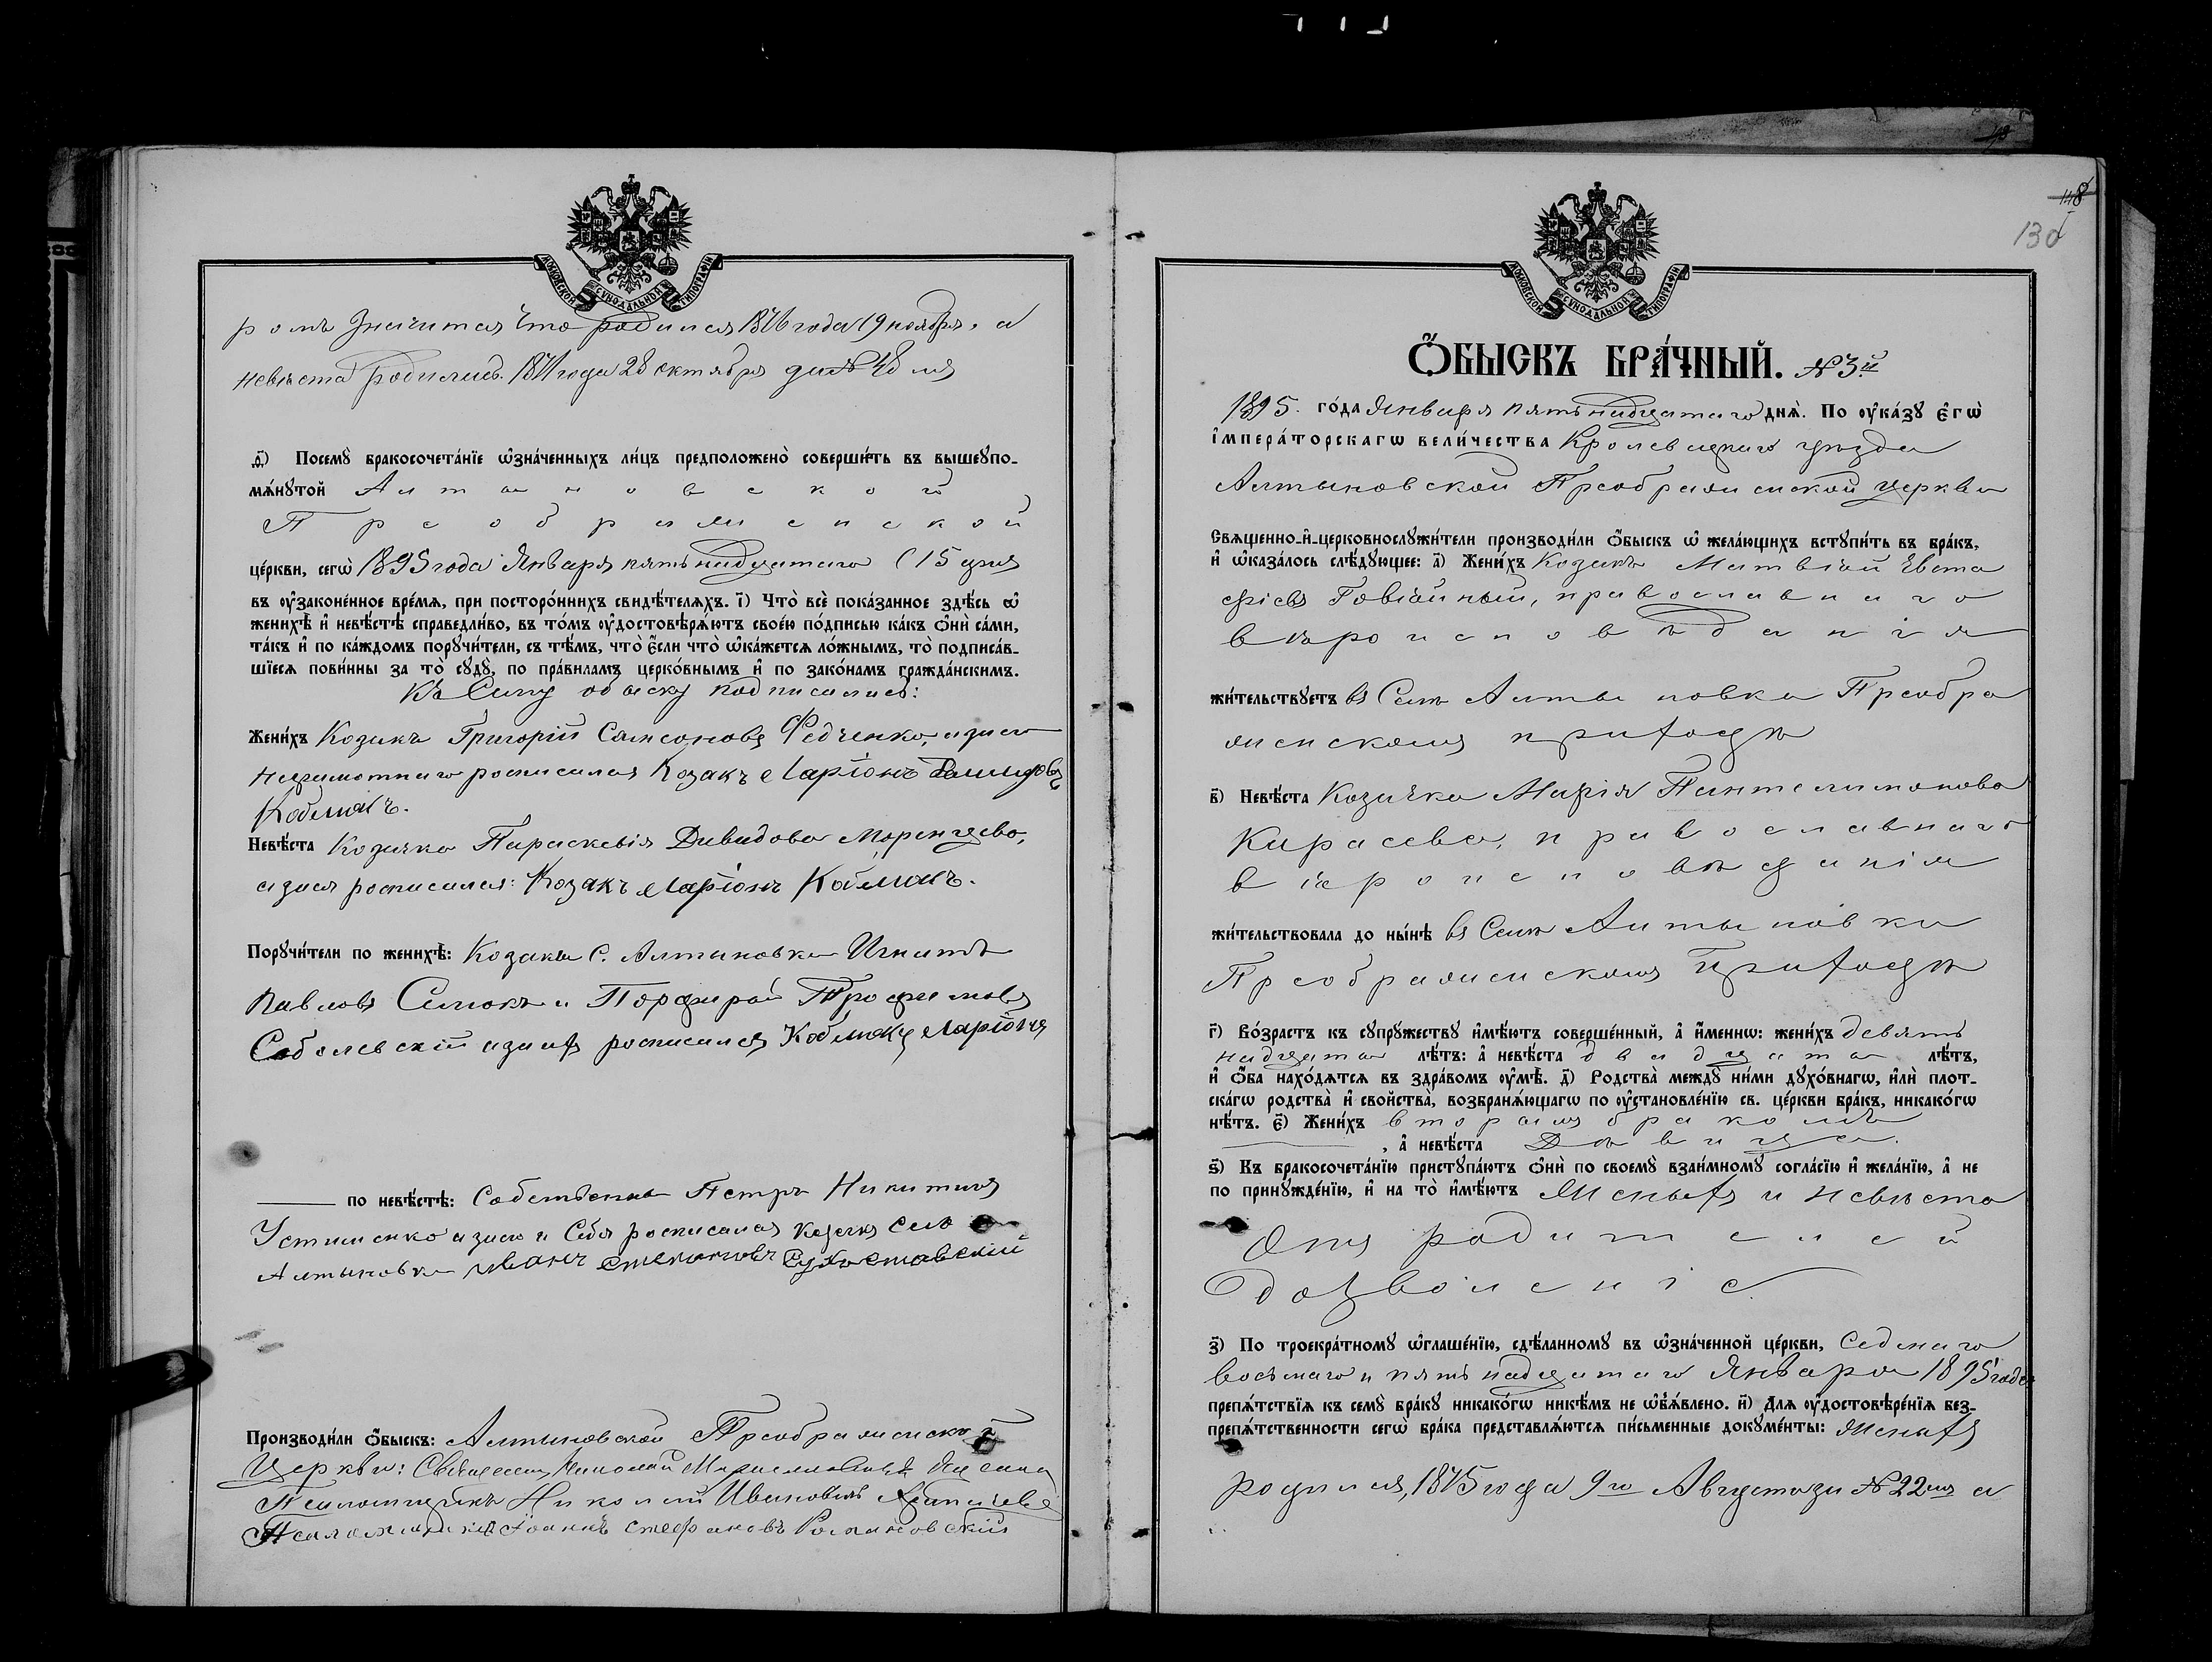 МОСКОВСКОЙ СУНОДАЛЬНОЙ ТИПОГРАФІИ
ромъ значится что родился 1876 года 19 ноября, а
невѣста родилась 1871 года 28 октября дня
ѳ҃) Посемꙋ̀ бракосочета́нїе ѡ҆зна́ченныхъ ли́цъ предположено̀ соверши́ть въ вышеꙋпо-
мѧ́нꙋтой Алтыновской
Преображенской
це́ркви, сегѡ̀ 1895 года Января пятьнадцатаго (15 дня
въ ᲂу҆законе́нное вре́мѧ, при посторо́ннихъ свидѣ́телѧхъ. і҃) Что̀ всѐ пока́занное здѣ́сь ѡ҆
женихѣ̀ и҆ невѣ́стѣ справедли́во, въ то́мъ ᲂу҆достовѣрѧ́ютъ свое́ю по́дписью ка́къ ѻ҆нѝ са́ми,
та́къ и҆ по ка́ждомъ порꙋчи́тели, съ тѣ́мъ, что̀ є҆́сли что̀ ѡ҆ка́жетсѧ ло́жнымъ, то̀ подписа́в-
шїесѧ пови́нны за то̀ сꙋдꙋ̀, по пра́виламъ церко́внымъ и҆ по зако́намъ гражда́нскимъ.
Къ Сему обыску подписались:
Жени́хъ Козакъ Григорій Самсоновъ Федченко, а за него
неграмотнаго росписался Козакъ Ларіонъ
Коблюкъ.
Невѣ́ста Козачка Параскевія Давидова
а за нея росписался: Козакъ Ларіонъ Коблюкъ.
Порꙋчи́тели по женихѣ̀: Козаки С. Алтыновки Игнатъ
Павловъ Симокъ и Порфирій Трофимовъ
Соболевскій а за нихъ росписался Коблюкъ Ларіонъ
по невѣ́стѣ: Петръ Никитинъ
Устименко а за него и Себя росписался козакъ Села
Алтыновки иванъ степановъ Сухоставскій
Производи́ли ѻ҆́быскъ: Алтыновской Преображенской
Церкви: Священникъ Николай
Псаломщикъ Николай Ивановичъ
Псаломщикъ Іоаннъ Стефановъ Романовскій
118
130
МОСКОВСКОЙ СУНОДАЛЬНОЙ ТИПОГРАФІИ
Ѻ҆́БЫСКЪ БРА́ЧНЫЙ. №3й
1895. го́да Января пятьнадцатаго днѧ̀. По ᲂу҆ка́зꙋ є҆гѡ̀
і҆мпера́торскагѡ вели́чества Кролевецкаго уѣзда
Алтыновской Преображенской церкви
Свѧщенно-и҆-церковнослꙋжи́тели производи́ли ѻ҆́быскъ ѡ҆ жела́ющихъ встꙋпи́ть въ бра́къ,
и҆ ѡ҆каза́лось слѣ́дꙋющее: а҃) Жени́хъ Козакъ Матвѣй Евста
фіевъ Говѣйный, православнаго
вѣроисповѣданія
жи́тельствꙋетъ въ Селѣ Алтыновка Преобра
женскомъ приходѣ
в҃) Невѣ́ста Козачка Марія Пантелимонова
Карасева, православнаго
вѣроисповѣданія
жи́тельствовала до ны́нѣ въ Селѣ Алтыновки
Преображенскомъ приходѣ
г҃) Во́зрастъ къ сꙋпрꙋ́жествꙋ и҆мѣ́ютъ соверше́нный, а҆ и҆́меннѡ: жени́хъ девять
надцати лѣ́тъ: а҆ невѣ́ста двадцати лѣ́тъ,
и҆ ѻ҆́ба нахо́дѧтсѧ въ здра́вомъ ᲂу҆мѣ̀. д҃) Родства̀ междꙋ̀ ни́ми дꙋхо́внагѡ, и҆лѝ плот-
ска́гѡ родства̀ и҆ свойства̀, возбранѧ́ющагѡ по ᲂу҆становле́нїю св. це́ркви бра́къ, никако́гѡ
нѣ́тъ. є҃) Жени́хъ вторымъ бракомъ
, а҆ невѣ́ста Дѣвица.
ѕ҃) Къ бракосочета́нїю пристꙋпа́ютъ ѻ҆нѝ по своемꙋ̀ взаи́мномꙋ согла́сїю и҆ жела́нїю, а҆ не
по принꙋжде́нїю, и҆ на то̀ и҆мѣ́ютъ Женихъ и невѣста
Отъ родителей
дозволеніе
з҃) По троекра́тномꙋ ѡ҆глаше́нїю, сдѣ́ланномꙋ въ ѡ҆зна́ченной це́ркви, Седмаго
восьмаго и пятьнадцатаго Января 1895 года
препѧ́тствїѧ къ семꙋ̀ бра́кꙋ никако́гѡ никѣ́мъ не ѡ҆б̾ѧ́влено. и҃) Длѧ ᲂу҆достовѣре́нїѧ без-
препѧ́тственности сегѡ̀ бра́ка представлѧ́ютсѧ пи́сьменные докꙋме́нты: Женихъ
родился, 1875 года 9го Августа за №22мъ а